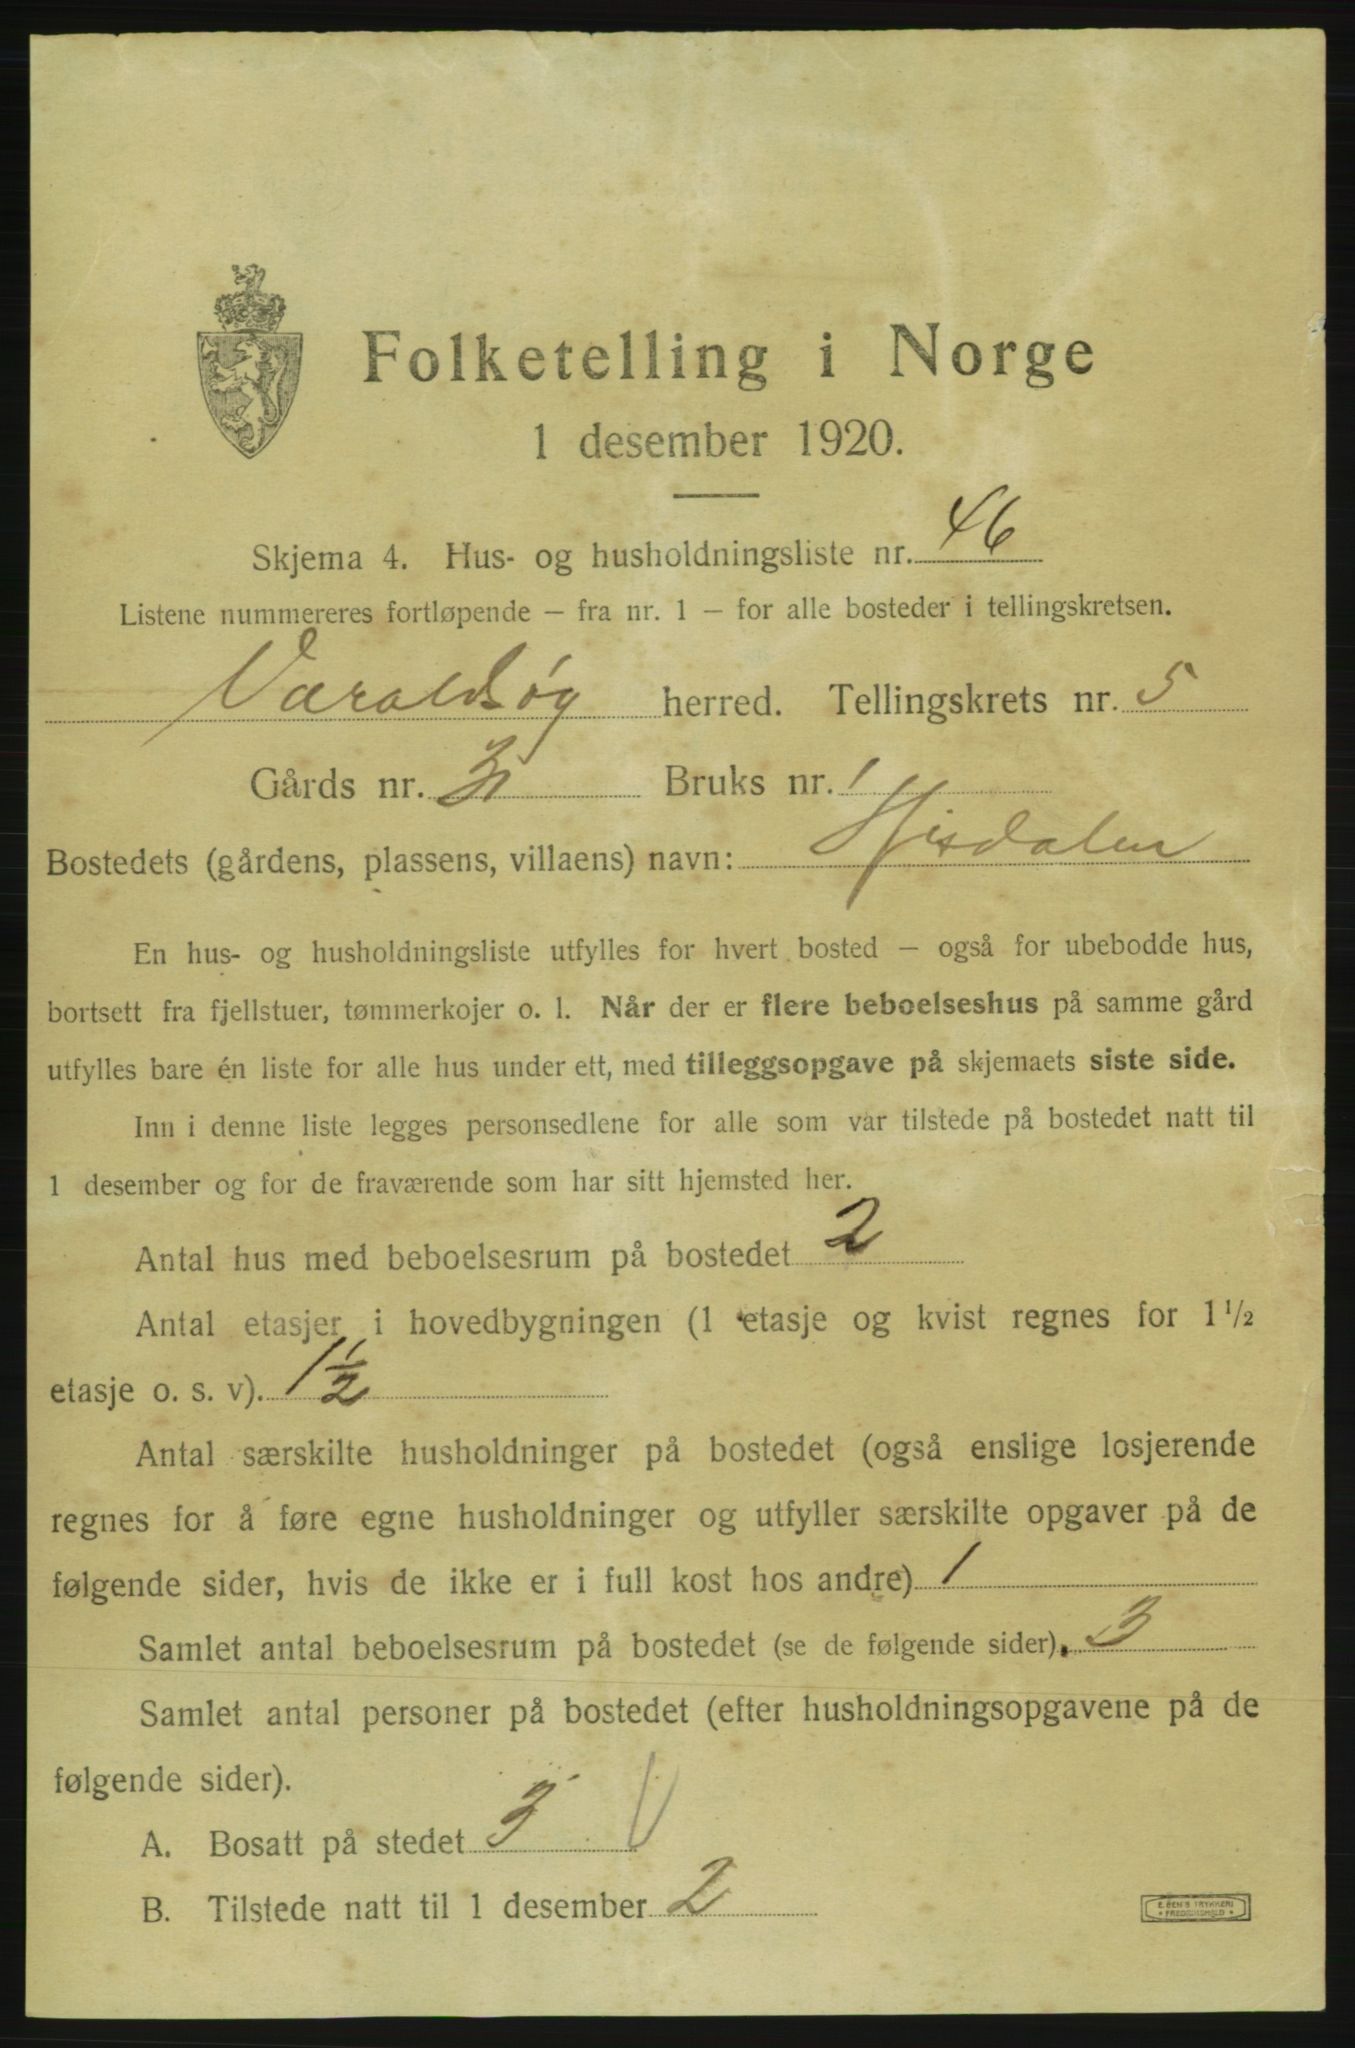 Folketelling i Norge
1 desember 1920.
Skjema 4. Hus- og husholdningsliste nr. 46
Listene nummereres fortløpende – fra nr. 1 – for alle bosteder i tellingskretsen.
Varaldsøy herred. Tellingskrets nr. 5
Gårds nr. Bruks nr. 1
Bostedets (gårdens, plassens, villaens) navn: Hisdalen
En hus- og husholdningsliste utfylles for hvert bosted – også for ubebodde hus,
bortsett fra fjellstuer, tømmerkojer o. l. Når der er flere beboelseshus på samme gård
utfylles bare én liste for alle hus under ett, med tilleggsopgave på skjemaets siste side.
Inn i denne liste legges personsedlene for alle som var tilstede på bostedet natt til
1 desember og for de fraværende som har sitt hjemsted her.
Antal hus med beboelsesrum på bostedet 2
Antal etasjer i hovedbygningen (1 etasje og kvist regnes for 1 1/2
etasje o. s. v). 1 1/2
Antal særskilte husholdninger på bostedet (også enslige losjerende
regnes for å føre egne husholdninger og utfyller særskilte opgaver på de
følgende sider, hvis de ikke er i full kost hos andre) 1
Samlet antal beboelsesrum på bostedet (se de følgende sider). 3
Samlet antal personer på bostedet (efter husholdningsopgavene på de
følgende sider).
A. Bosatt på stedet 3
B. Tilstede natt til 1 desember 2
E. SEM'S TRYKKERI
FREDRIKSHALD